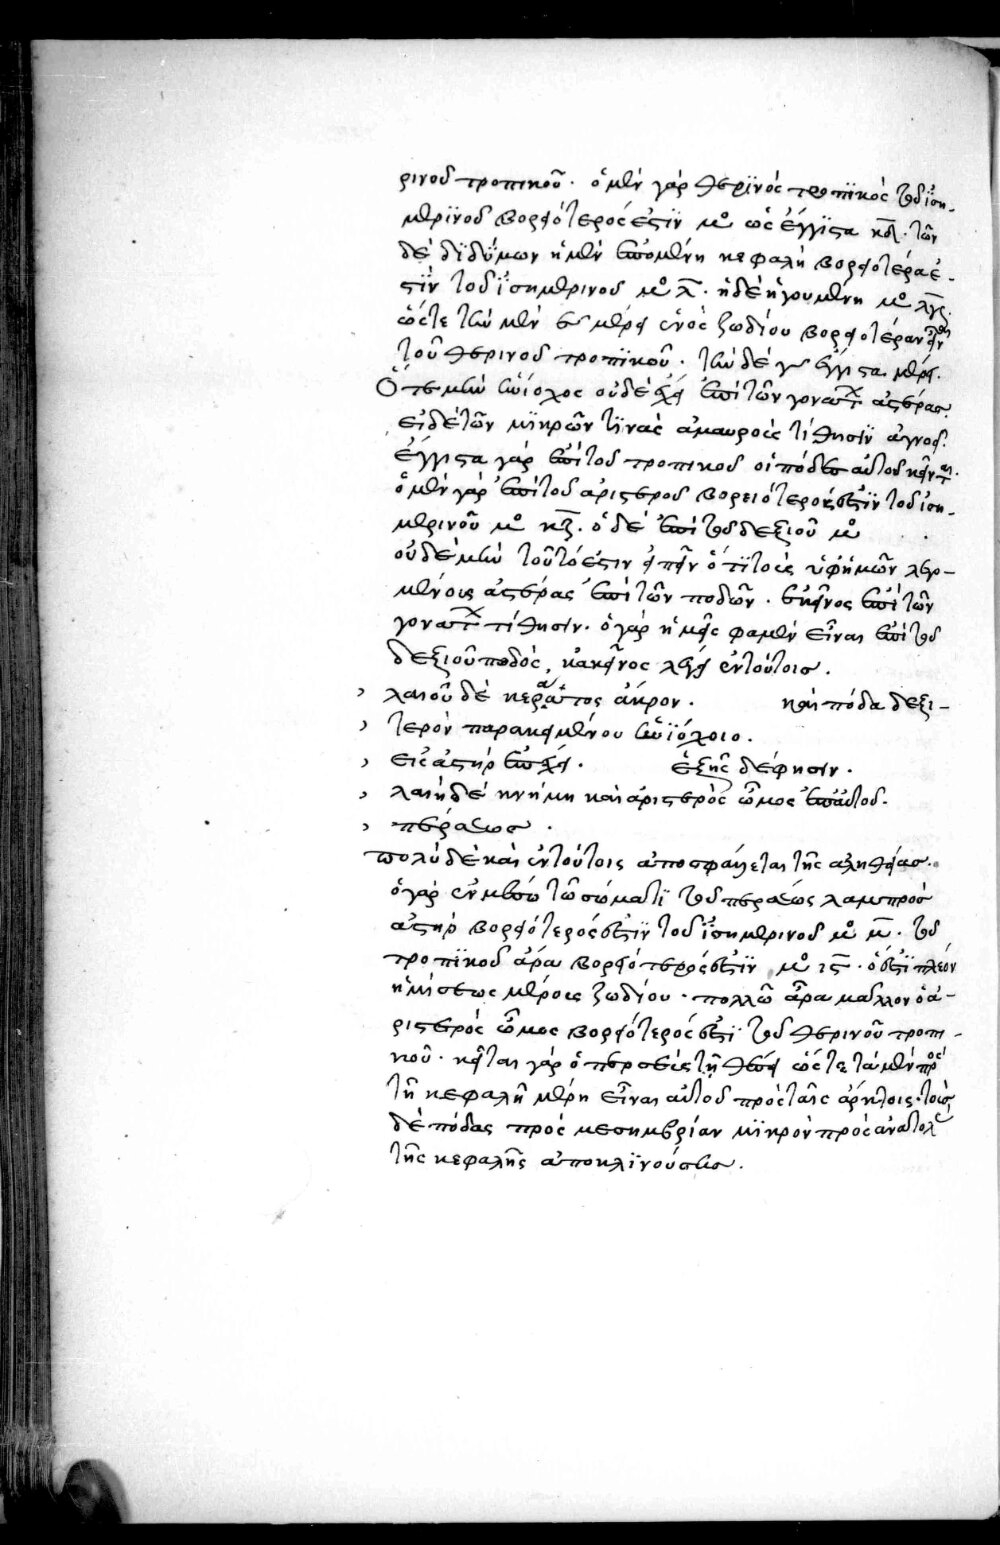 ρινοῦ τροπικοῦ. ὁ μὲν γὰρ θερϊνὸς τροπϊκὸς τοῦ ἰση-
μερϊνοῦ βορειότερός ἐστϊν μο ὡς ἔγγϊστα κδ. τῶν
δὲ δϊδύμων ἡ μὲν ἑπομένη κεφαλὴ βορειοτέρα ἐ-
στὶν τοῦ ἰσημερινοῦ μο λ. ἡ δὲ ἡγουμένη μο λγ
ὥστε τὴν μὲν μέρει ἑνὸς ζωδίου βορειοτέραν εἶναι
τοῦ θερινοῦ τροπϊκοῦ. τὴν δὲ γ ἔγγιστα μέρει.
Ὅτε μὲν ἡνίοχος οὐδὲ ἔχει ἐπὶ τῶν γονάτων ἀστέρας.
εἰ δὲ τῶν μϊκρῶν τϊνὰς ἀμαυροὺς τίθησϊν ἀγνοεῖ.
ἔγγιστα γὰρ ἐπὶ τοῦ τροπικοῦ οἱ πόδες αὐτοῦ κεῖνται.
ὁ μὲν γὰρ ἐπὶ τοῦ ἀριστεροῦ βορειότερός ἐστϊν τοῦ ἰση-
μερινοῦ μο κζ. ὁ δὲ ἐπὶ τοῦ δεξιοῦ μο
οὐδὲ μὲν τοῦτό ἐστιν εἰπεῖν ὅτϊ τοὺς ὑφ' ἡμῶν λεγο-
μένους ἀστέρας ἐπὶ τῶν ποδῶν. ἐκεῖνος ἐπὶ τῶν
γονάτων τίθησιν. ὁ γὰρ ἡμεῖς φαμὲν εἶναι ἐπὶ τοῦ
δεξιοῦ ποδὸς, κἀκεῖνος λέγει ἐν τούτοις.
, λαιοῦ δὲ κεράατος ἄκρον. καὶ πόδα δεξι-
, τερὸν παρακειμένου ἡνϊόχοιο.
, εἷς ἀστὴρ ἐπέχει. ἑξῆς δέ φησιν.
, λαιὴ δὲ κνήμη καὶ ἀριστερὸς ὦμος ἐπ' αὐτοῦ.
, περσέως.
πολὺ δὲ καὶ ἐν τούτοις ἀποσφάλεται τῆς ἀληθείας.
ὁ γὰρ ἐν μέσῳ τῶ σώματϊ τοῦ περσέως λαμπρὸς
ἀστὴρ βορειότερός ἐστϊν τοῦ ἰσημερινοῦ μο μ. τοῦ
τροπϊκοῦ ἄρα βορειότερός ἐστϊν μο ις. ὅ ἐστϊ πλέον
ἡμίσεως μέρους ζωδίου. πολλῶ ἄρα μᾶλλον ὁ ἀ-
ριστερὸς ὦμος βορειότερός ἐστϊ τοῦ θερινοῦ τροπι-
κοῦ. κεῖται γὰρ ὁ περσεὺς τῆ θέσει ὥστε τὰ μὲν πρὸς
τῆ κεφαλῆ μέρη εἶναι αὐτοῦ πρὸς ταῖς ἄρκτοις. τοὺς
δὲ πόδας πρὸς μεσημβρίαν μϊκρὸν πρὸς ἀνατολὰς
τῆς κεφαλῆς ἀποκλϊνούσης.